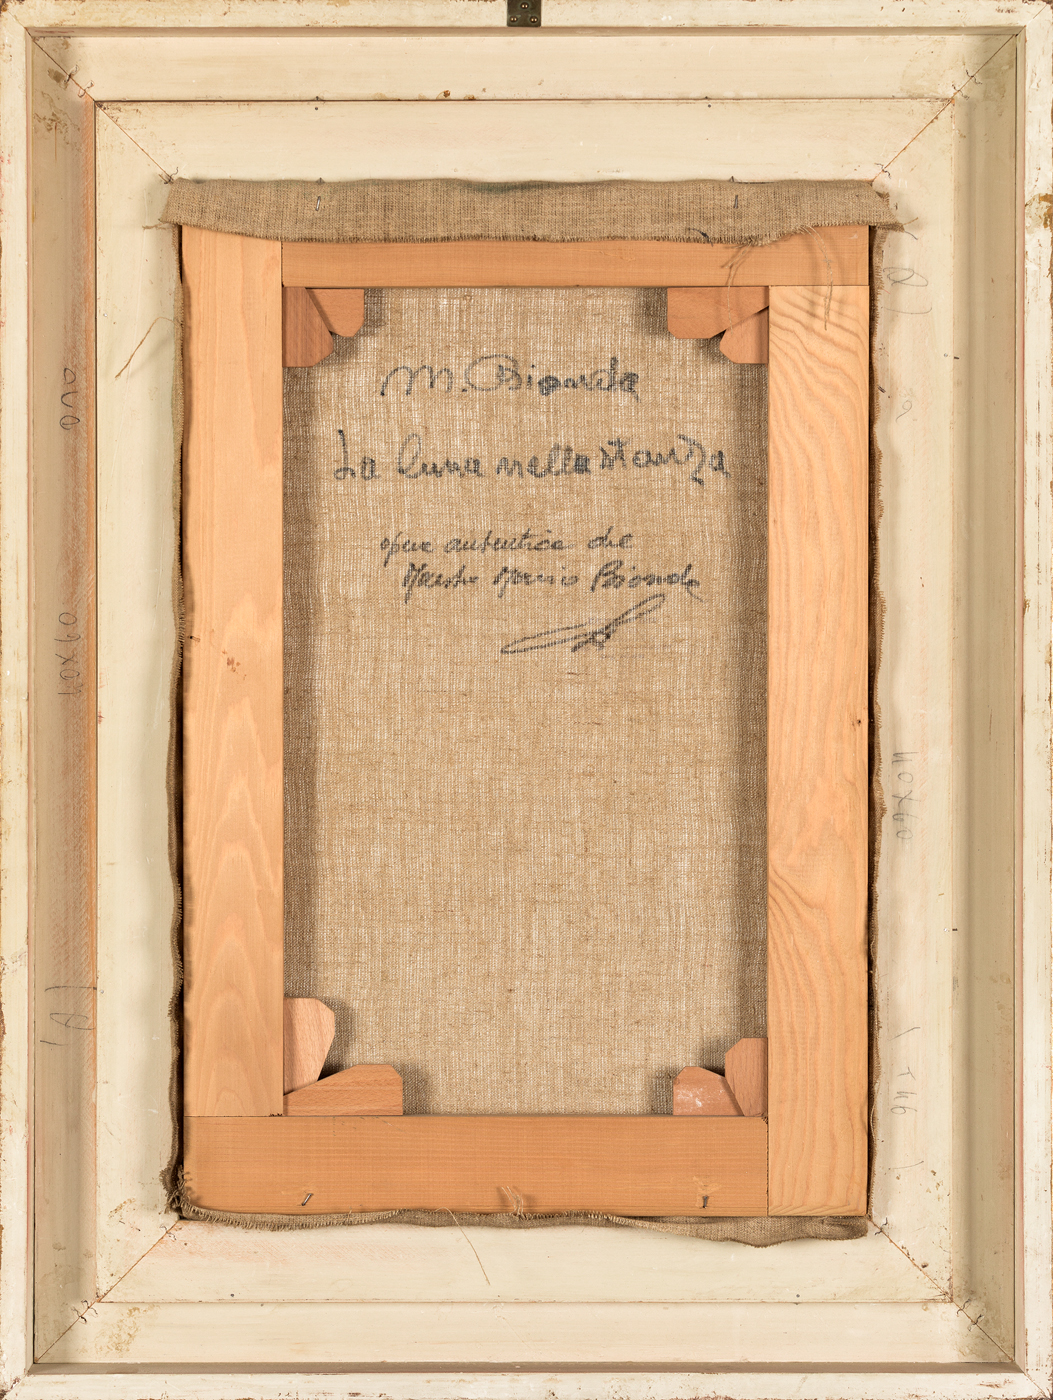 M. Bionda
La luna nella stanza
opera autentica del
Maestro Mario Bionda
40x60
40x60